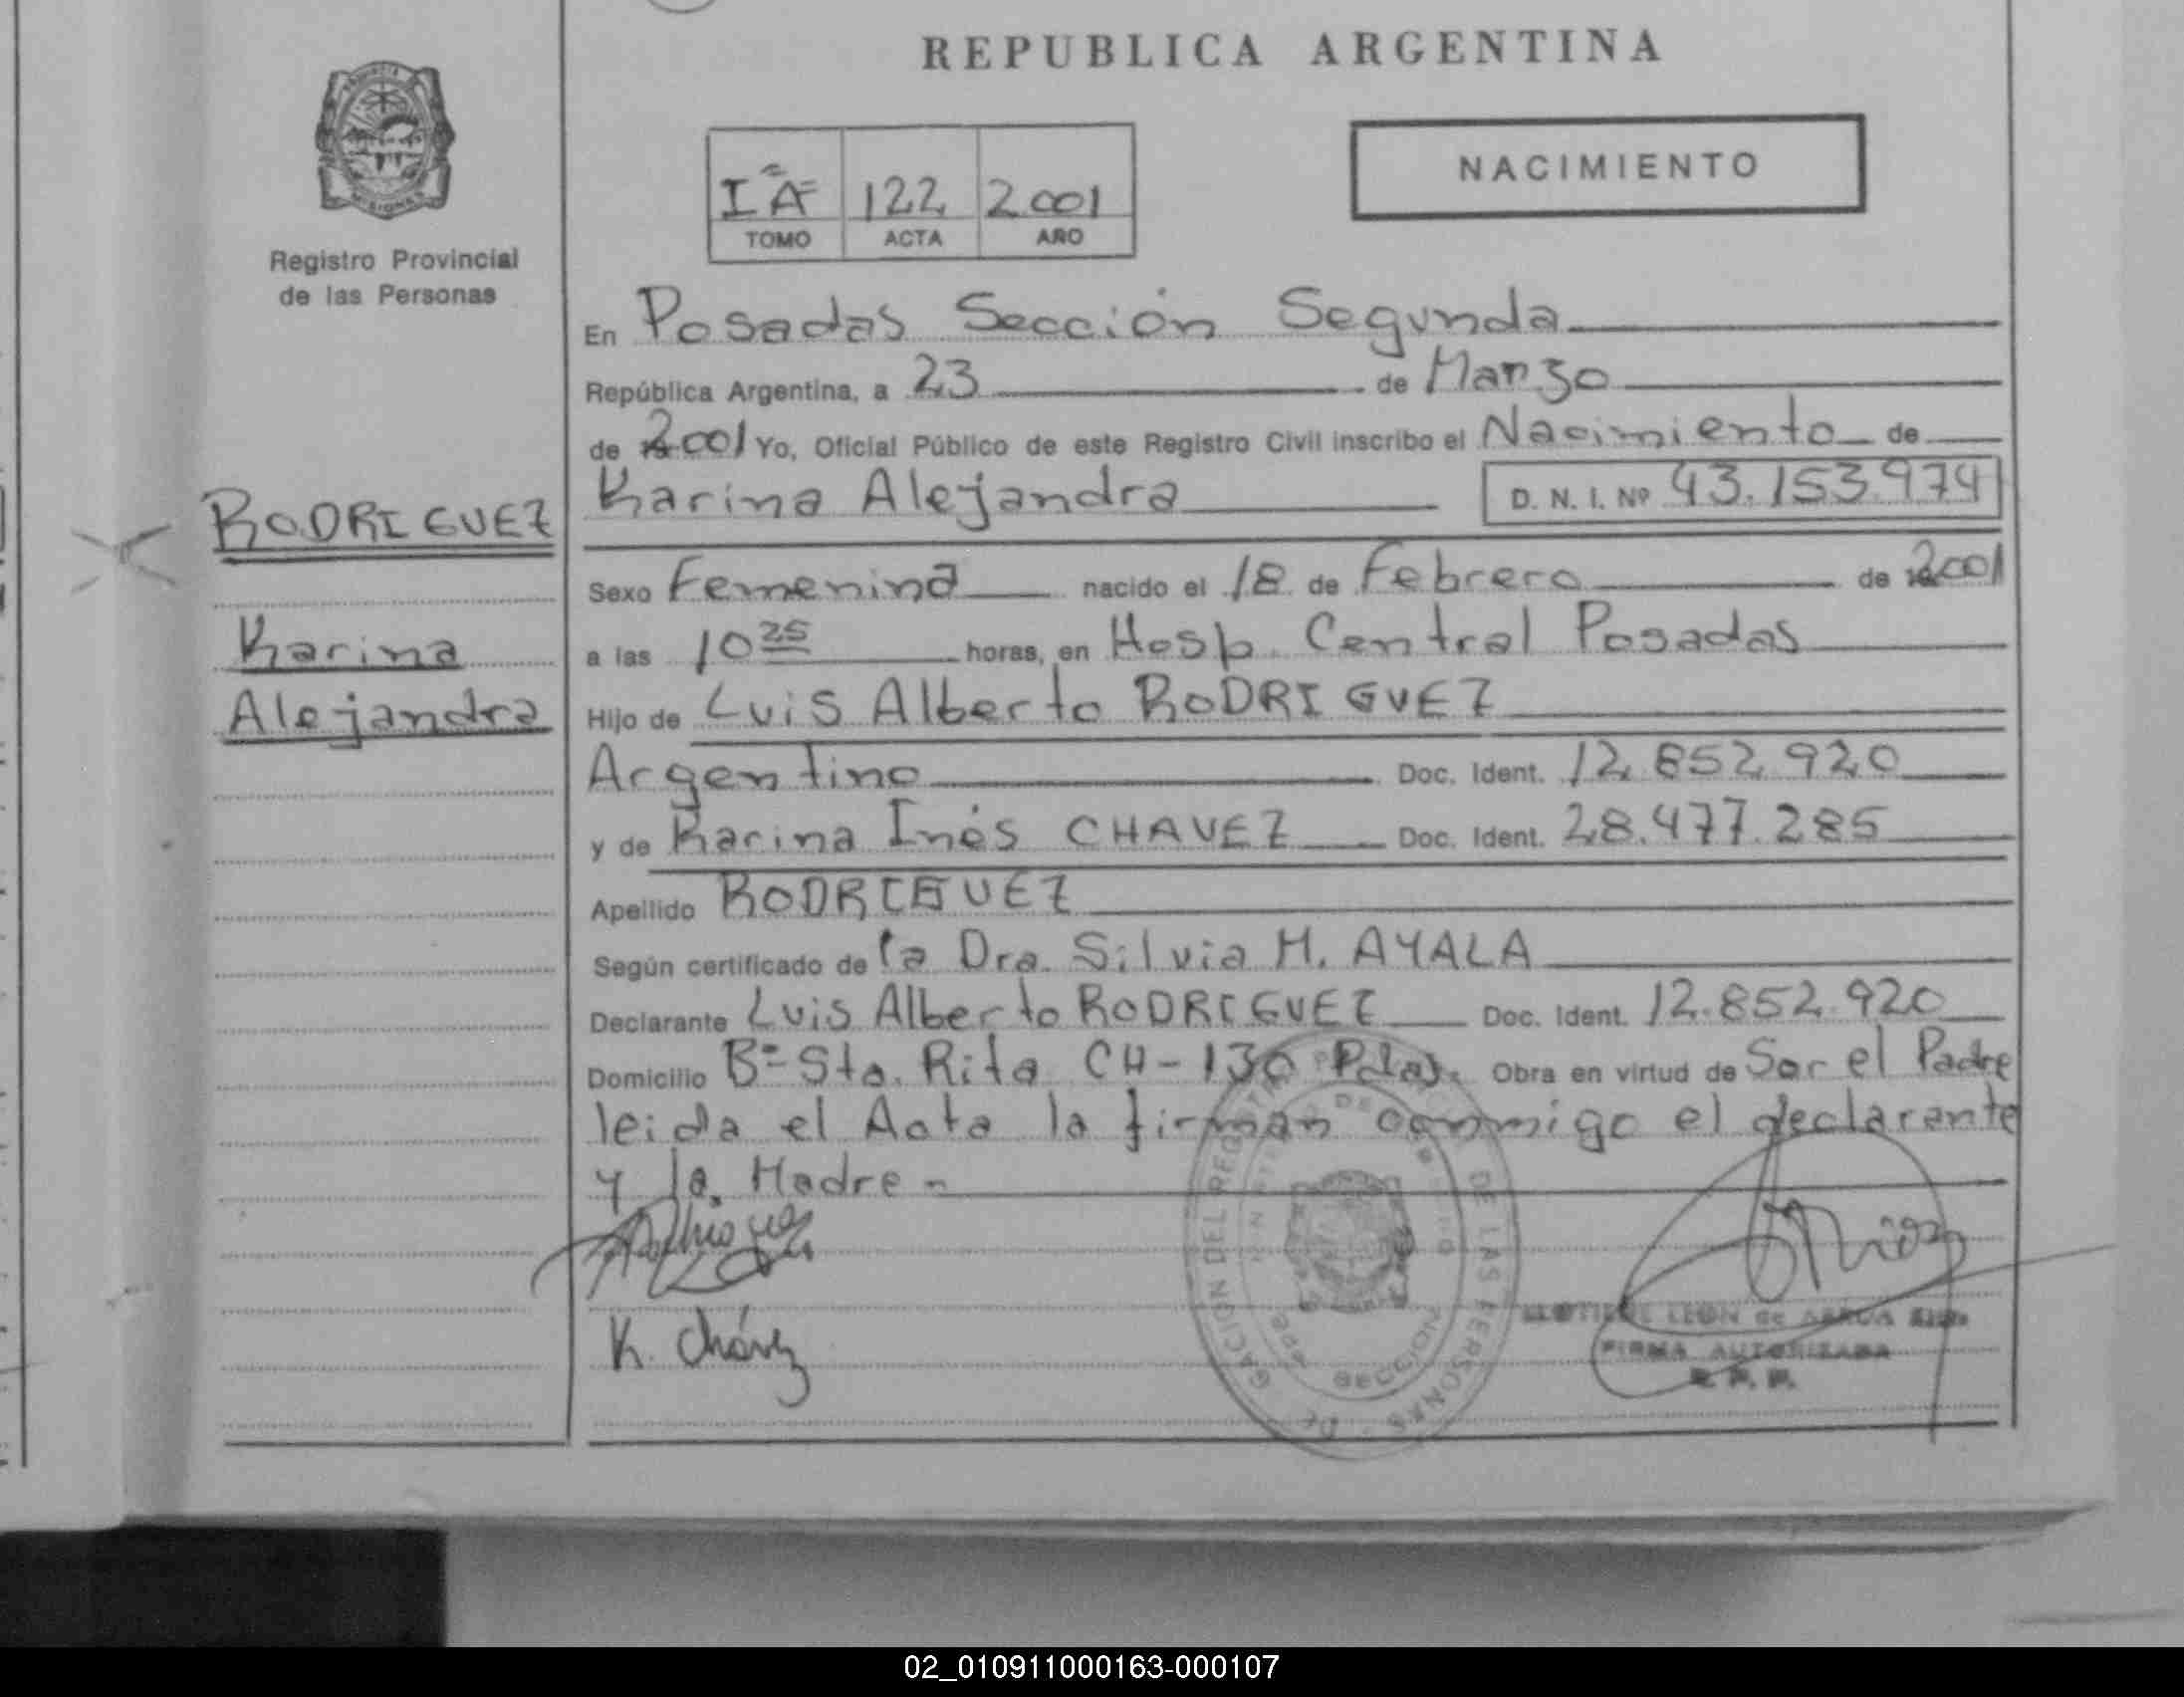 REPUBLICA ARGENTINA
NACIMIENTO
IA 122 2001
TOMO ACTA AÑO
MISIONES
Registro Provincial
de las Personas
RODRIGUEZ
Karina
Alejandra
En Posadas Sección Segunda
República Argentina, a 23 de Marzo
de 2001 Yo, Oficial Público de este Registro Civil inscribo el Nacimiento de
Karina Alejandra D. N. I. Nº 43.153.974
Sexo Femenino nacido el 18 de Febrero de 2001
a las 10 25 horas, en Hosp. Central Posadas
Hijo de Luis Alberto RODRIGUEZ
Argentino Doc. Ident. 12.852.920
y de Karina Inés CHAVEZ Doc. Ident. 28.477.285
Apellido RODRIGUEZ
Según certificado de la Dra. Silvia M. AYALA
Declarante Luis Alberto RODRIGUEZ Doc. Ident. 12.852.920
Domicilio Bº Sta. Rita CH-130 Pdas. Obra en virtud de Ser el Padre
leida el Acta la firman conmigo el declarante
y la Madre -
K. Chávez
LEON de
FIRMA AUTORIZADA
R. P. P.
DEL REGISTRO DE LAS PERSONAS
SECCION
02_010911000163-000107